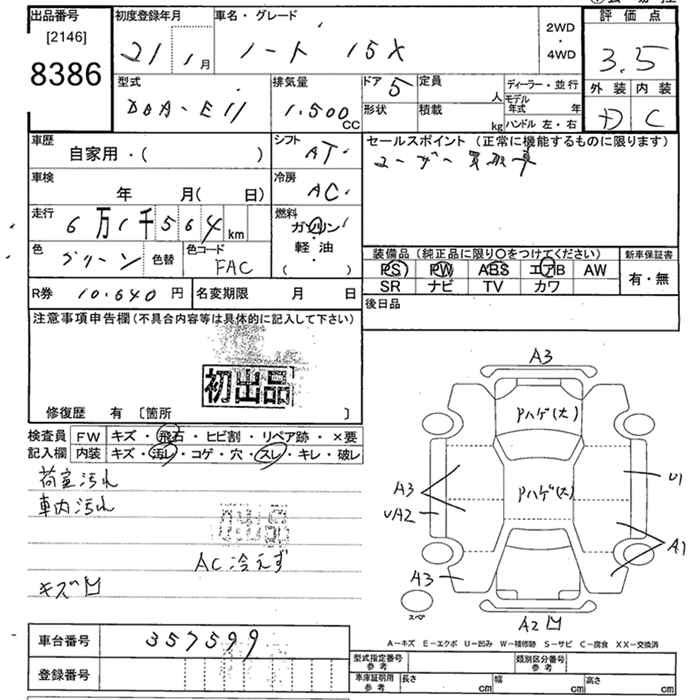 出品番号 初度登録年月 車名・グレード 評価点
[2146]
8386
21年1月 ノート 15X 2WD・4WD 3.5
型式 排気量 ドア 5 定員 人 ディーラー・並行 外装 内装
DBA-E11 1.500CC 形状 積載 kg モデル年式 年 ハンドル 左・右 D C
車歴 自家用・( ) シフト AT セールスポイント (正常に機能するものに限ります)
ユーザー買取車
車検 年 月( 日) 冷房 AC
走行 6万1千564km 燃料 ガソリン・軽油( )
色 グリーン 色替 色コード FAC
装備品 (純正品に限り〇をつけてください) 新車保証書
PS PW ABS エアB AW 有・無
SR ナビ TV カワ
R券 10.640円 名変期限 月 日 後日品
注意事項申告欄 (不具合内容等は具体的に記入して下さい)
初出品
修復歴 有 〔箇所 〕
検査員 FW キズ・飛石・ヒビ割・リペア跡・×要
記入欄 内装 キズ・汚レ・コゲ・穴・スレ・キレ・破レ
荷室汚れ
車内汚れ
AC冷えず
キズ凹
A3
Pハゲ(大)
Pハゲ(大)
A3
UA2
U1
A1
A3
スペア
A2凹
A-キズ E-エクボ U-凹み W-補修跡 S-サビ C-腐食 XX-交換済
車台番号 357599
登録番号
型式指定番号 参考 類別区分番号 参考
車庫証明用 参考 長さ cm 幅 cm 高さ cm